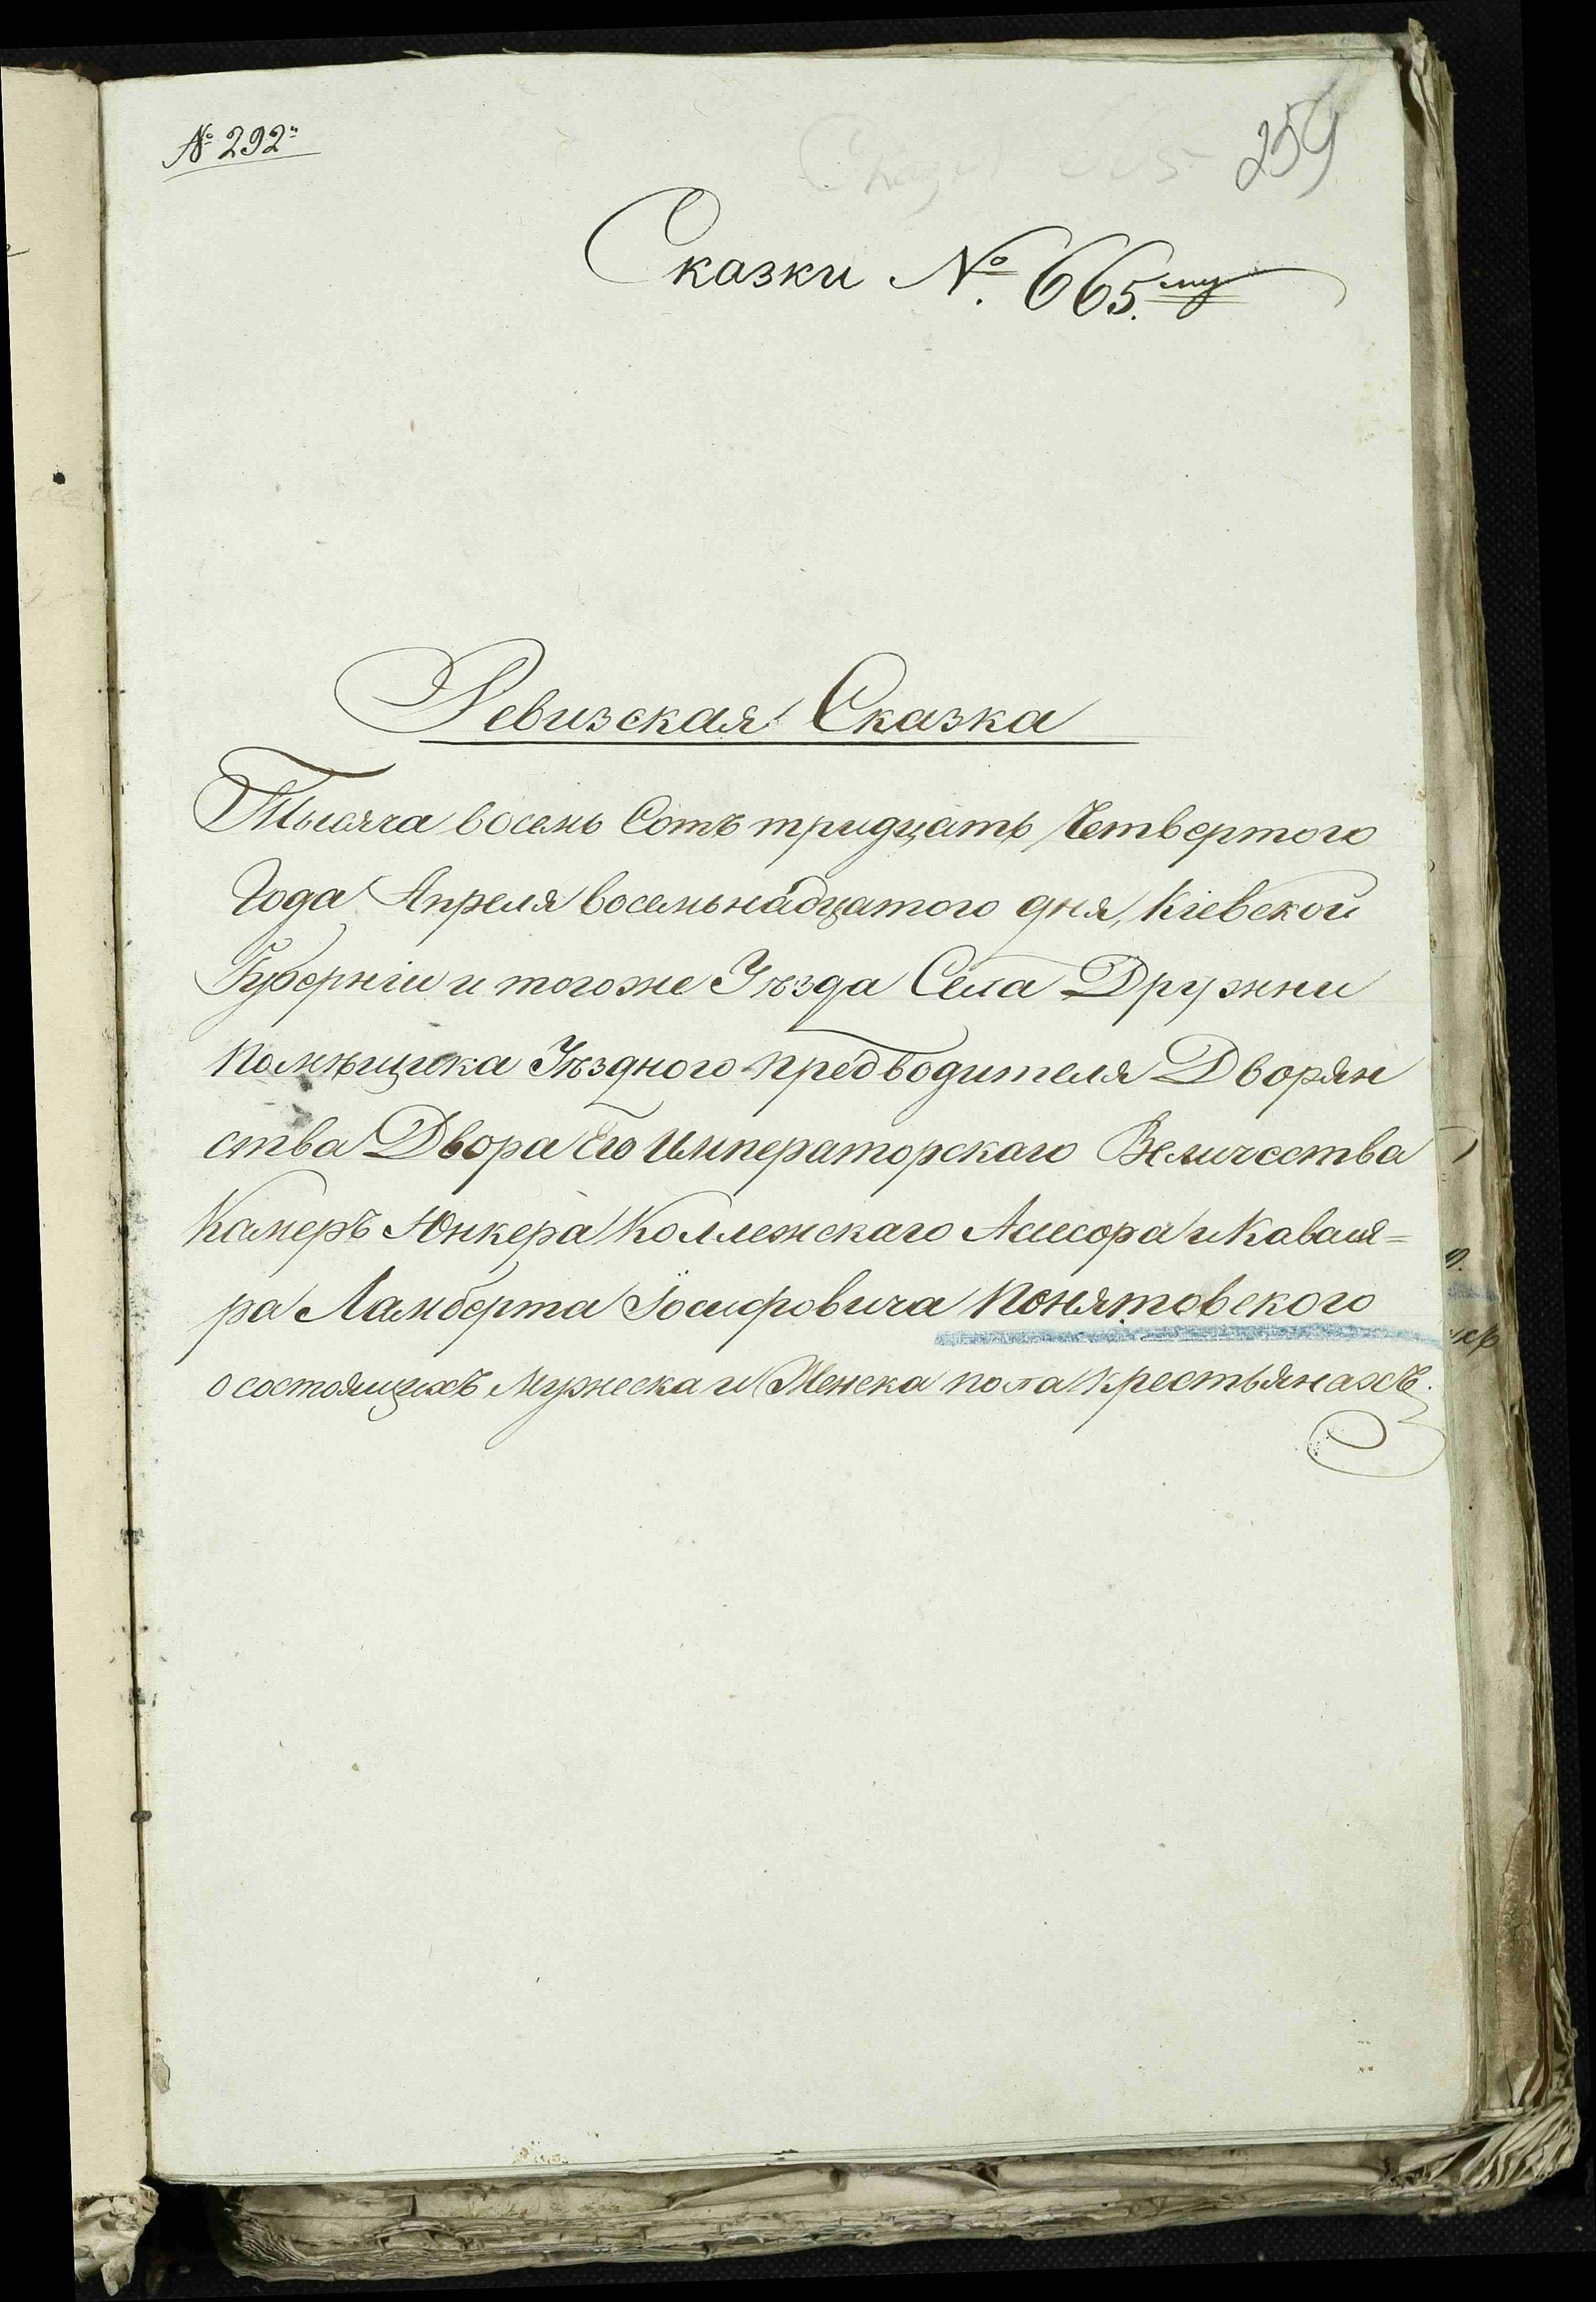 № 292й
259
Сказки № 665му
Ревизская Сказка
Тысяча восемь Сотъ тридцать Четвертого
Года Апреля восемьнадцатого дня, Кіевской
Губерніи и тогоже Уѣзда Села Дружни
Помѣщика Уѣздного предводителя Дворян
ства Двора Его Императорскаго Величества
Камеръ Юнкера Коллежскаго Асесора и Кавале=
ра Ламберта Іосифовича Понятовского
о состоящихъ Мужеска и Женска пола крестьянахъ.